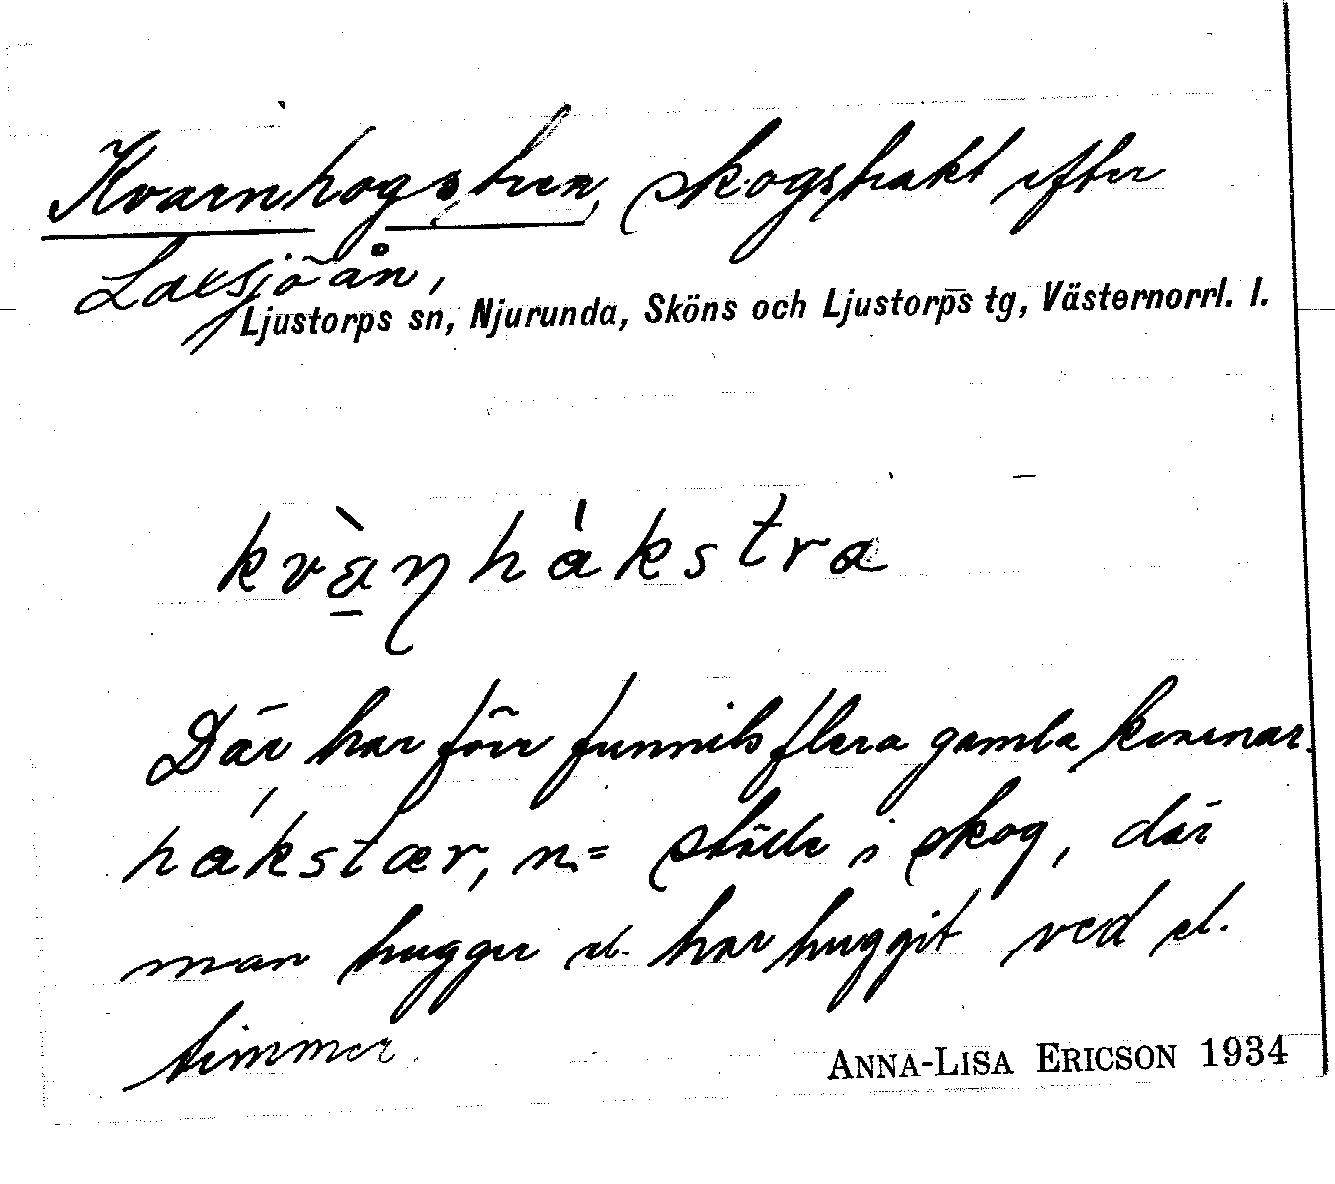 Kvarnhogstren, skogstrakt efter
Laxsjöån,
Ljustorps sn, Njurunda, Sköns och Ljustorps tg, Västernorrl. l.
kvà̱ɳhákstra
Där har förr funnits flera gamla kvarnar.
hákstær, n = ställe i skog, där
man hugger el. har huggit ved el.
timmer.
ANNA-LISA ERICSON 1934